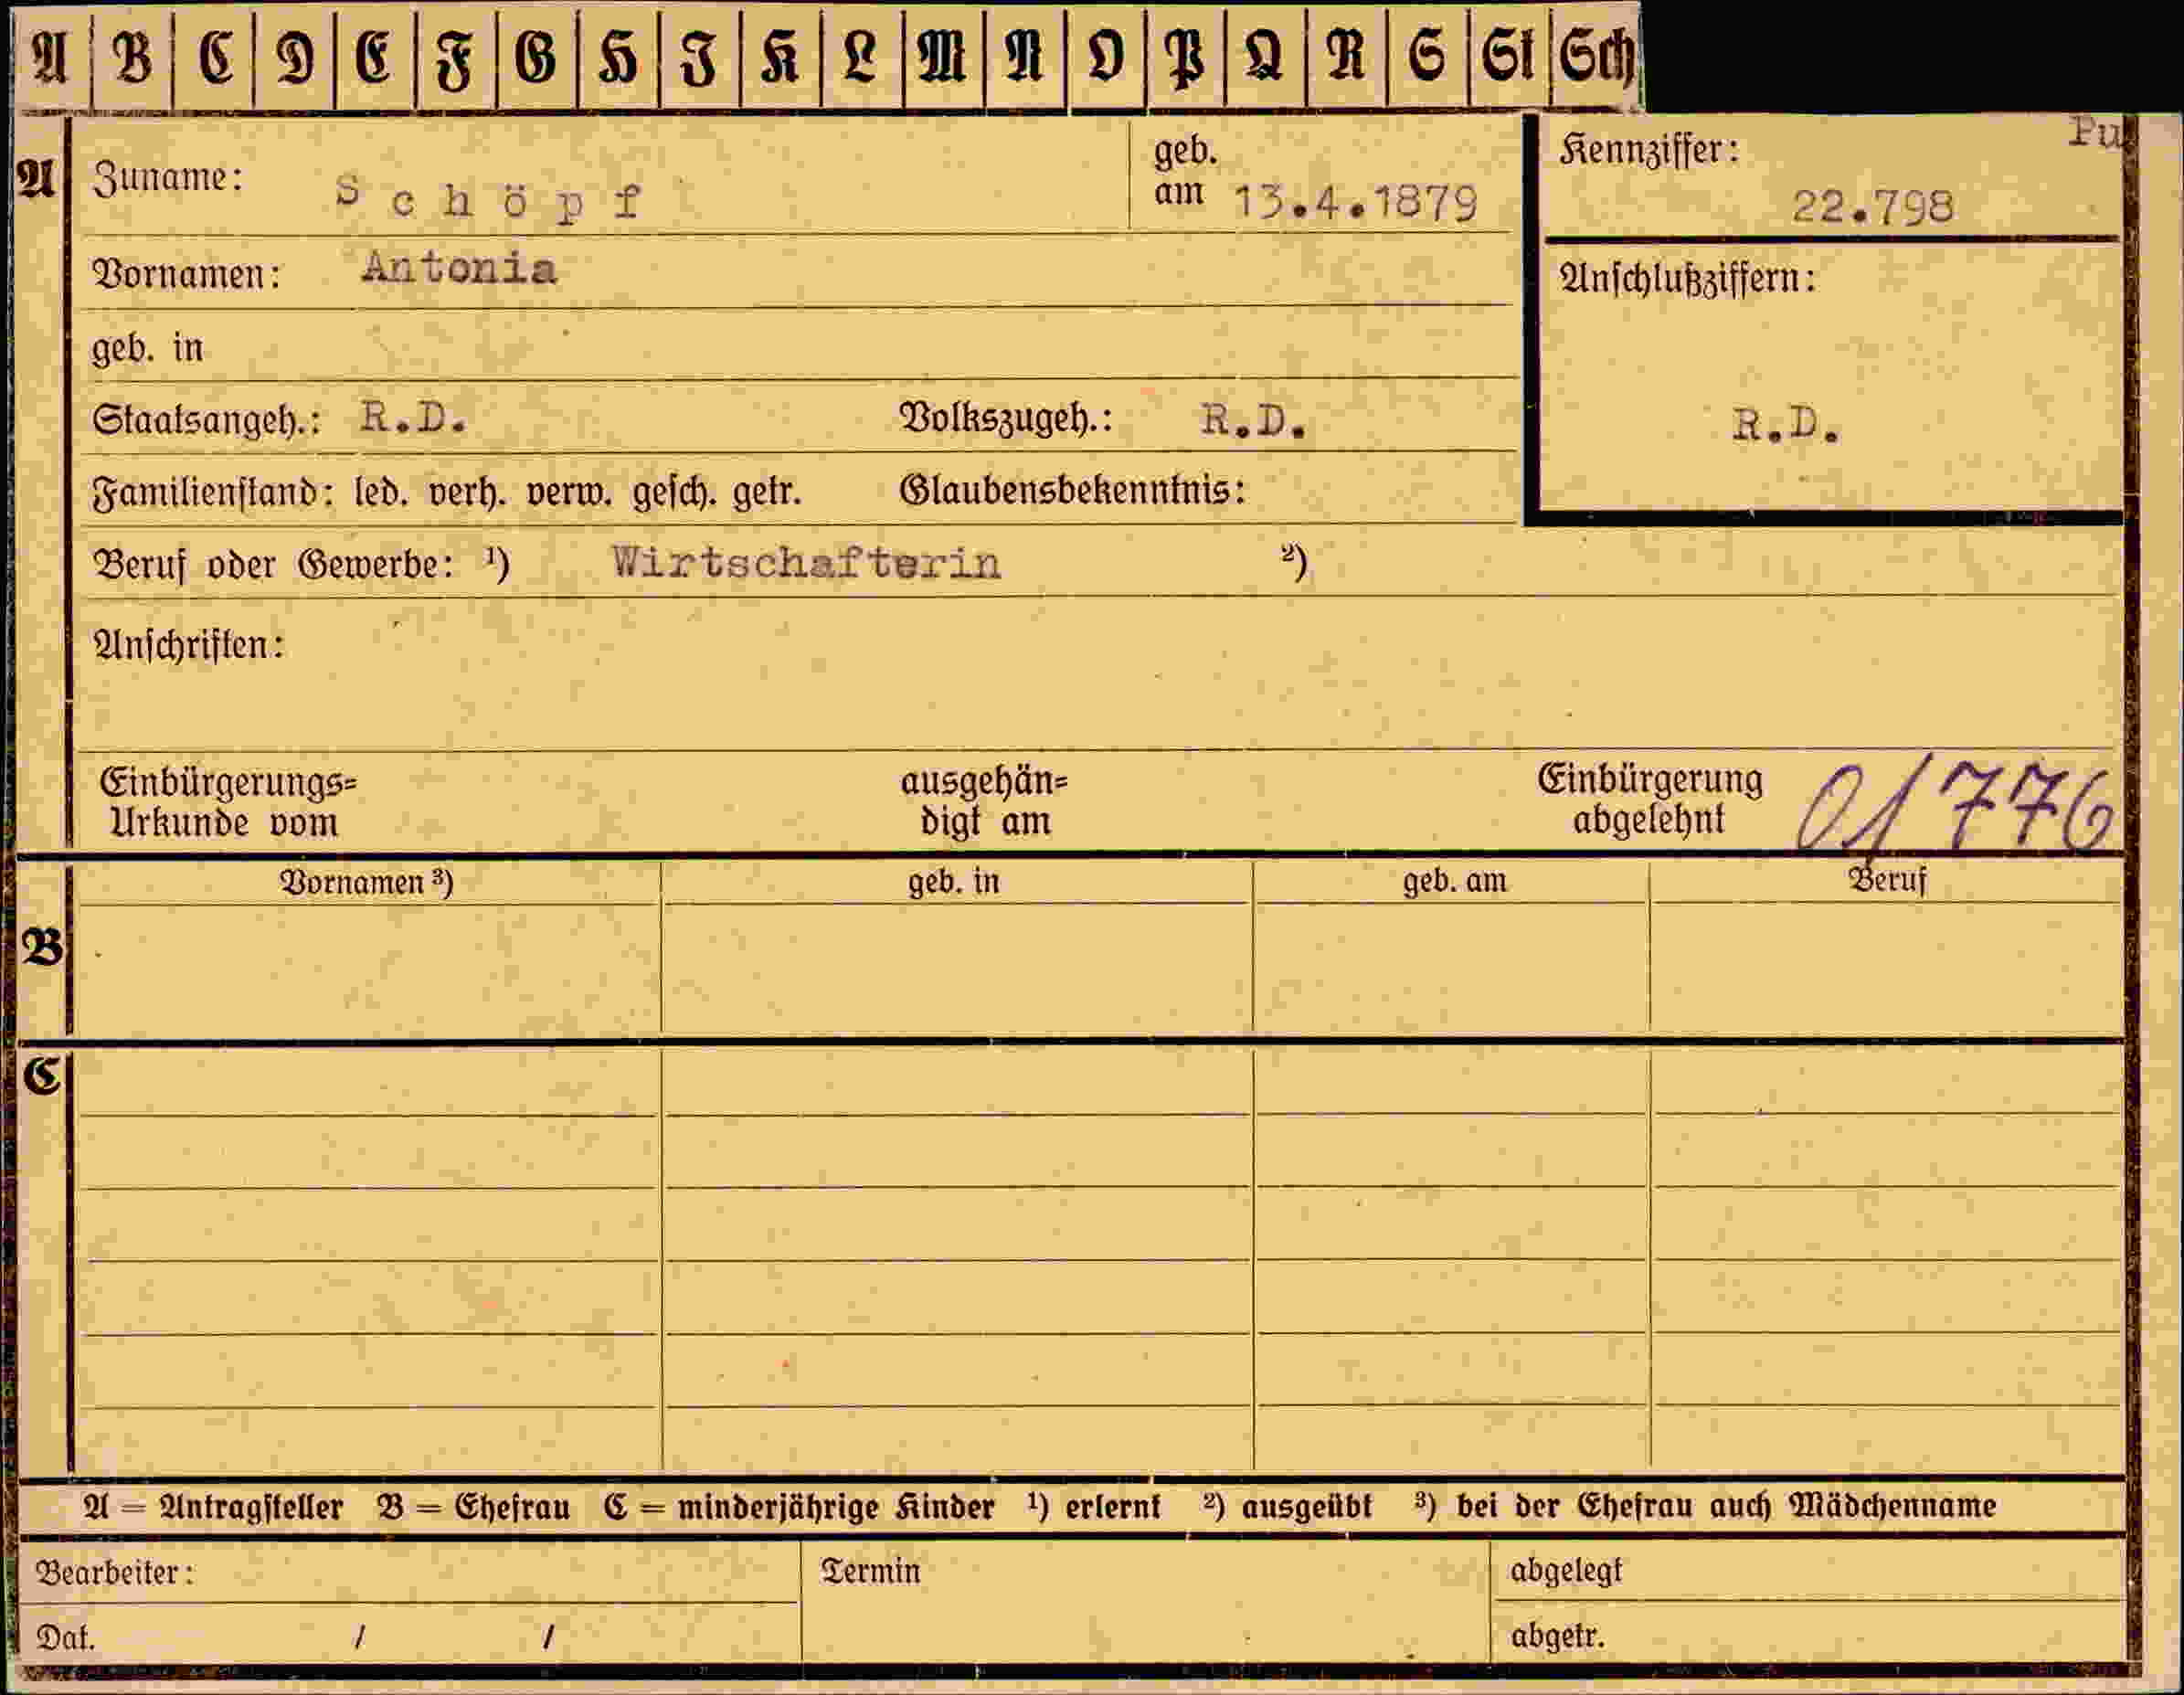 A B C D E F G H I K L M N O P Q R S St Sch
Pu
A Zuname: Schöpf geb. am 13.4.1879 Kennziffer: 22.798
Vornamen: Antonia Anschlußziffern:
geb. in
Staatsangeh.: R.D. Volkszugeh.: R.D. R.D.
Familienstand: led. verh. verw. gesch. getr. Glaubensbekenntnis:
Beruf oder Gewerbe: ¹) Wirtschafterin ²)
Anschriften:
Einbürgerungs= ausgehän= Einbürgerung 01776
Urkunde vom digt am abgelehnt
Vornamen ³) geb. in geb. am Beruf
B
C
A = Antragsteller B = Ehefrau C = minderjährige Kinder ¹) erlernt ²) ausgeübt ³) bei der Ehefrau auch Mädchenname
Bearbeiter: Termin abgelegt
Dat. / / abgetr.